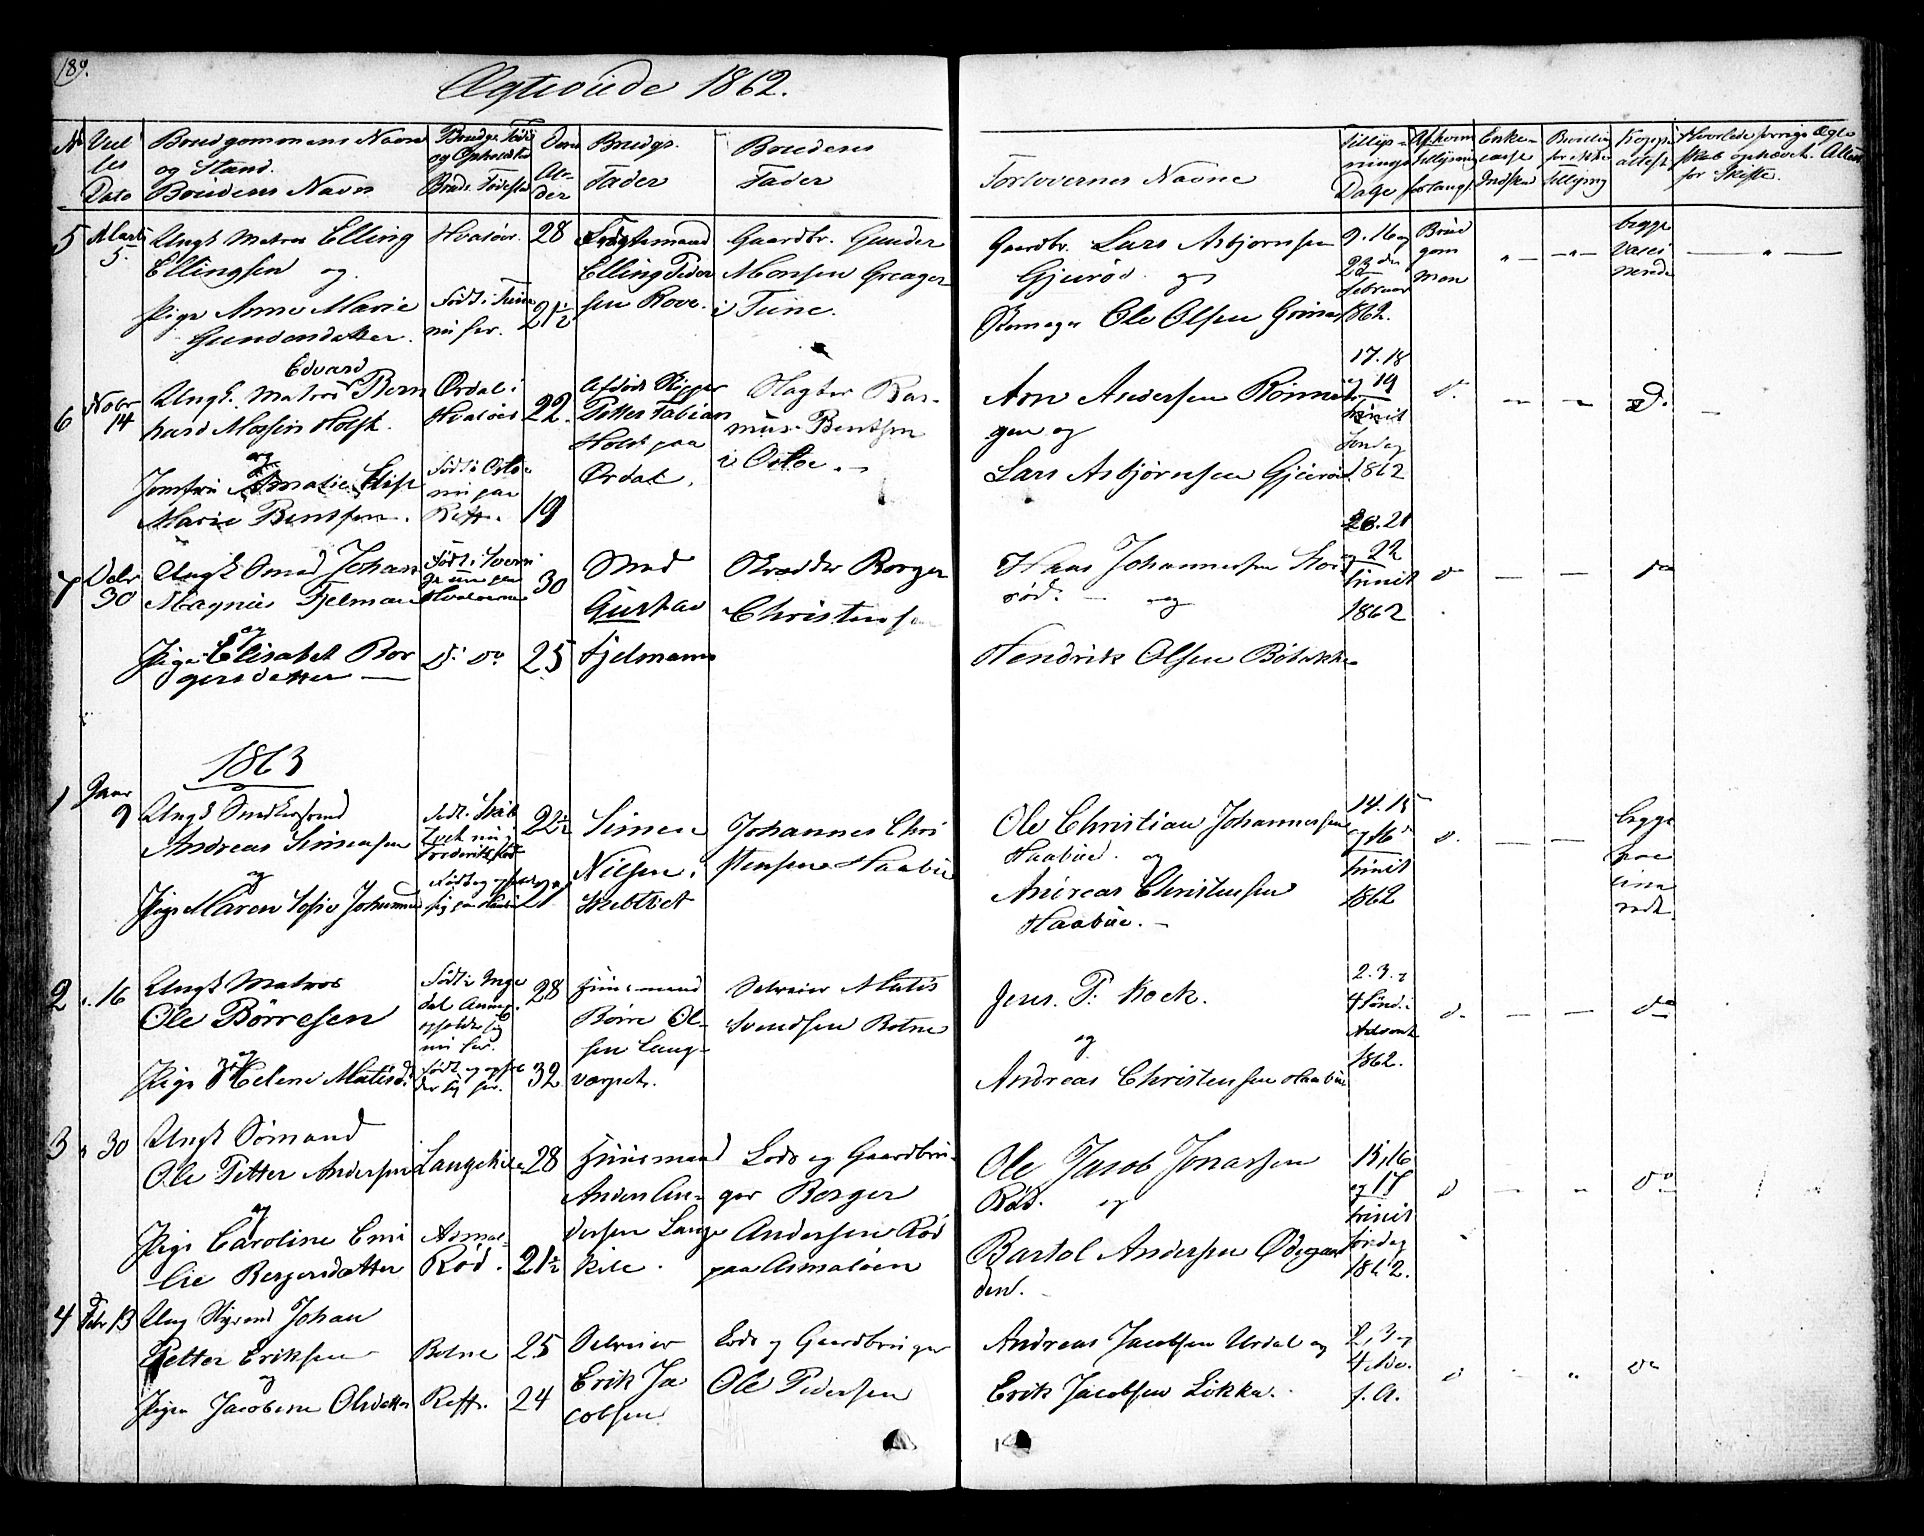 189.
Ægteviede 1862.
No Viel-
les
Dato
Brudgommens Navn
og Stand.
Brudens Navn
Brudgs. Føde
og Opholdsted
Bruds. Fødested
Deres
Al-
der
Brudgs.
Fader
Brudens
Fader
Forlovernes Navne
Tillys-
nings
Dage
Af hvem
tillysning
forlangt
Enke-
casse
Indskud
Bevilling
for ikke
tillysning
Koppe
attest
Hvorledes forrige Ægte
skab ophævet. Attest
for Skifte.
5 Marts
5
Ungk. Matros Elling
Ellingsen og
Pige Anne Marie
Gundersdatter.
Hvaløer.
Født i Tune
nu her.
28
21½
Elling Peder
sen Rove.
Gaardbr. Gunder
Monsen Greager
i Tune.
Gaardbr. Lars Asbjørnsen
Gjerød. og
Ole Olsen
9. 16 og
23de
Februar
1862.
Brud
gom
men
" — — " —
begge
vacci
nerede
— " —
6 Nobr
14
Edvard
Ungk. Matros Bern
hard Holst.
og
Jomfru Amalie Elise
Marie Bentsen.
Ørdal i
Hvaløer
Født i Oslo
nu paa
Reff.
22.
19
Afdøde Rigger
Petter Fabian
Holst paa
Ørdal.
Slagter Ras-
mus Bentsen
i Oslo. —
Aron Andersen Rønnin
gen og
Lars Asbjørnsen Gjerød
17. 18
og 19
trinit
Søndag
1862
d. — — do. —
7 Debr
30
Ungk Smed Johan
Magnus Fjelman
og
Pige Elisabet Bor
gersdatter —
Født i Sverri
ge nu paa
Hvaløerne
do do
30
25
Smed
Gustav
Fjelmann
Skrædder Borger
Christensen
Hans Johannesen Stor
rød. — og
Hendrik Olsen Bøbakke
20. 21
og 22
trinit
1862
do — — do
1863
1 Januar
9
Ungk Smedsvend
Andreas Simensen
og
Pige Maren Sofie Johannesd
Født i Skib
tvet nu i
Frederikstad
Født og ophol
sig paa Haabu
22½
21
Simen
Nilsen i
Skibtvet
Johannes Chri
stensen Haabu
Ole Christian Johannesen
Haabue. og
Andreas Christensen
Haabue. —
14. 15
og 16
trinit
1862
d. — —
begge
vac
cine
rede
2 " 16
Ungk Matros
Ole Børresen
og
Pige Helene Matisd.
Født i Inge
dal
opholder sig
nu her.
Født og ophol
der sig her.
28
32
Huusmand
Børre Ol-
sen Lang-
værpet.
Selveier Matis
Svendsen Botne
Jens. P. Kock.
og
Andreas Christensen Haabue
2. 3. og
4 Sønd. i
Advent
1862.
d. — — do
3 " 30
Ungk Sømand
Ole Petter Andersen
og
Pige Caroline Emi
lie Borgersdatter
Langekile
Asmal-
Rød.
28
21½
Huusmand
Anders An-
dersen Lange
kile.
Lods og Gaardbru-
ger Borger
Andersen Rød
paa Asmaløen
Ole Jacob Jonassen
Rød. og
Bartol Andersen Ødegaar
den.
15, 16
og 17
trinit
søndag
1862.
d — " do
4 Febr 13
Ung Styrmd Johan
Petter Eriksen
og
Pigen Jacobine Olsdatter
Botne
Reff.
25
24
Selveier
Erik Ja
cobsen
Lods og Gaardbruger
Ole Pedersen
Andreas Jacobsen Urdal og
Erik Jacobsen Løkka.
2, 3 og
4 Adv.
f. A.
d - " do